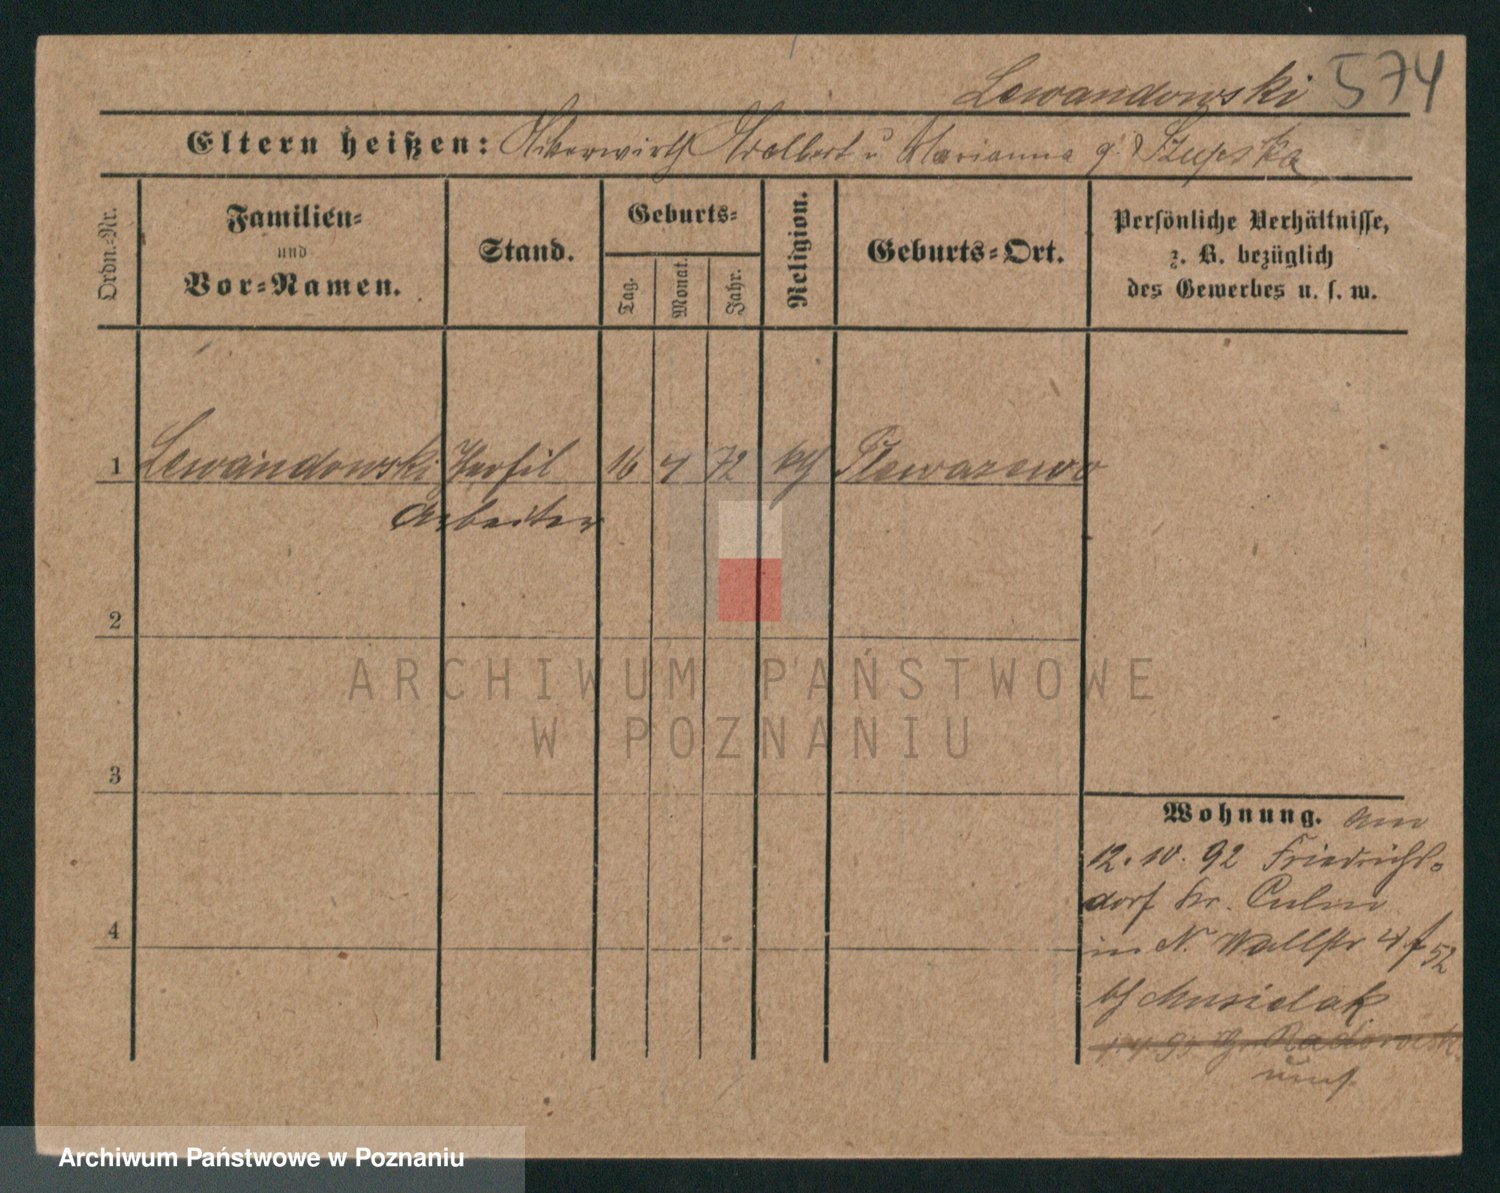 Lewandowski 574
Eltern heißen: Adalbert u Marianna g. Szupska
Ordn.-Nr.
Familien-
und
Vor-Namen.
Stand.
Geburts-
Tag.
Monat.
Jahr.
Religion.
Geburts-Ort.
Persönliche Verhältnisse,
z. B. bezüglich
des Gewerbes u. s. w.
1 Lewandowski 16 4 72 kth
Arbeiter
2
3
4
Wohnung. am
12.10.92 Friedrichs-
dorf Kr. Culm
in N. Wallstr 4
bei Musielak
ARCHIWUM PAŃSTWOWE
W POZNANIU
Archiwum Państwowe w Poznaniu